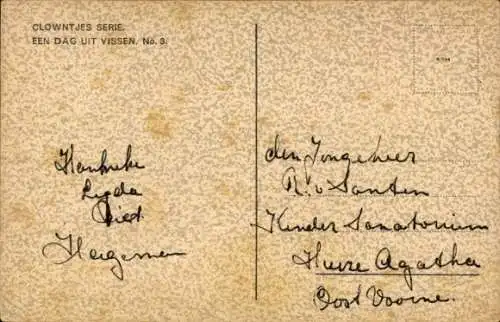 CLOWNTJES SERIE.
EEN DAG UIT VISSEN. No. 3.
Hanneke
Lyda
Piet
Hageman
den Jongeheer
R. v Santen
Kinder Sanatorium
Huize Agatha
Oost Voorne.